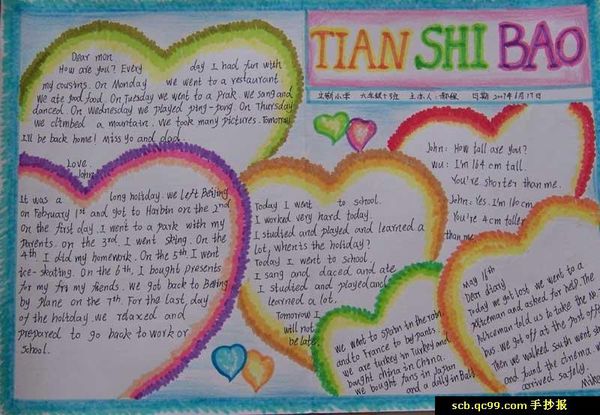 TIAN SHI BAO
Dear mon
How are you? Every day I had fun with
my cousins. On Monday we went to a restaurant.
We ate good food. On Tuesday we went to a prak. We sang and
danced. On Wednesday we played ping-pong. On Thursday
We climbed a mountain. We took many pictures. Tomorrow
I'll be back home! Miss yo and dad.
Love.
John
It was a long holiday. We left Beijing
on February 1st and got to Harbin on the 2nd
on the first day. I went to a park with my
Parents. on the 3rd. I went skiing. On the
4th I did my homework. On the 5th I went
ice-skating. On the 6th, I bought presents
for my for my friends. We got back to Bering
by plane on the 7th. For the last day
of the holiday. we relaxed and
prepared to go back to work or
school.
Today I went to school.
I worked very hard today.
I studied and played and learned a
lot, when is the holiday?
Today I went to school
I sang and daced and ate
I studied and played and
learned a lot.
Tomorrow I
will not
be late.
John: How tall are you?
Wu: I'm 164 cm tall.
You're shorter than me.
John: Yes. I'm 160cm
You're 4 cm taller
than me.
We went to Spain in the rain
and to France to by pants
we are turkey in Turkey and
bought china in China.
We bought fans in Japan
and a daily in Bali
May 16th
Dear diary
Today we got lost we went to a
Policeman and asked for help. The
Policeman told us to take the No.
bus we got off at the post office
Then we walked south went
and found the cinema
arrived safely.
Mike
scb.qc99.com 手抄报